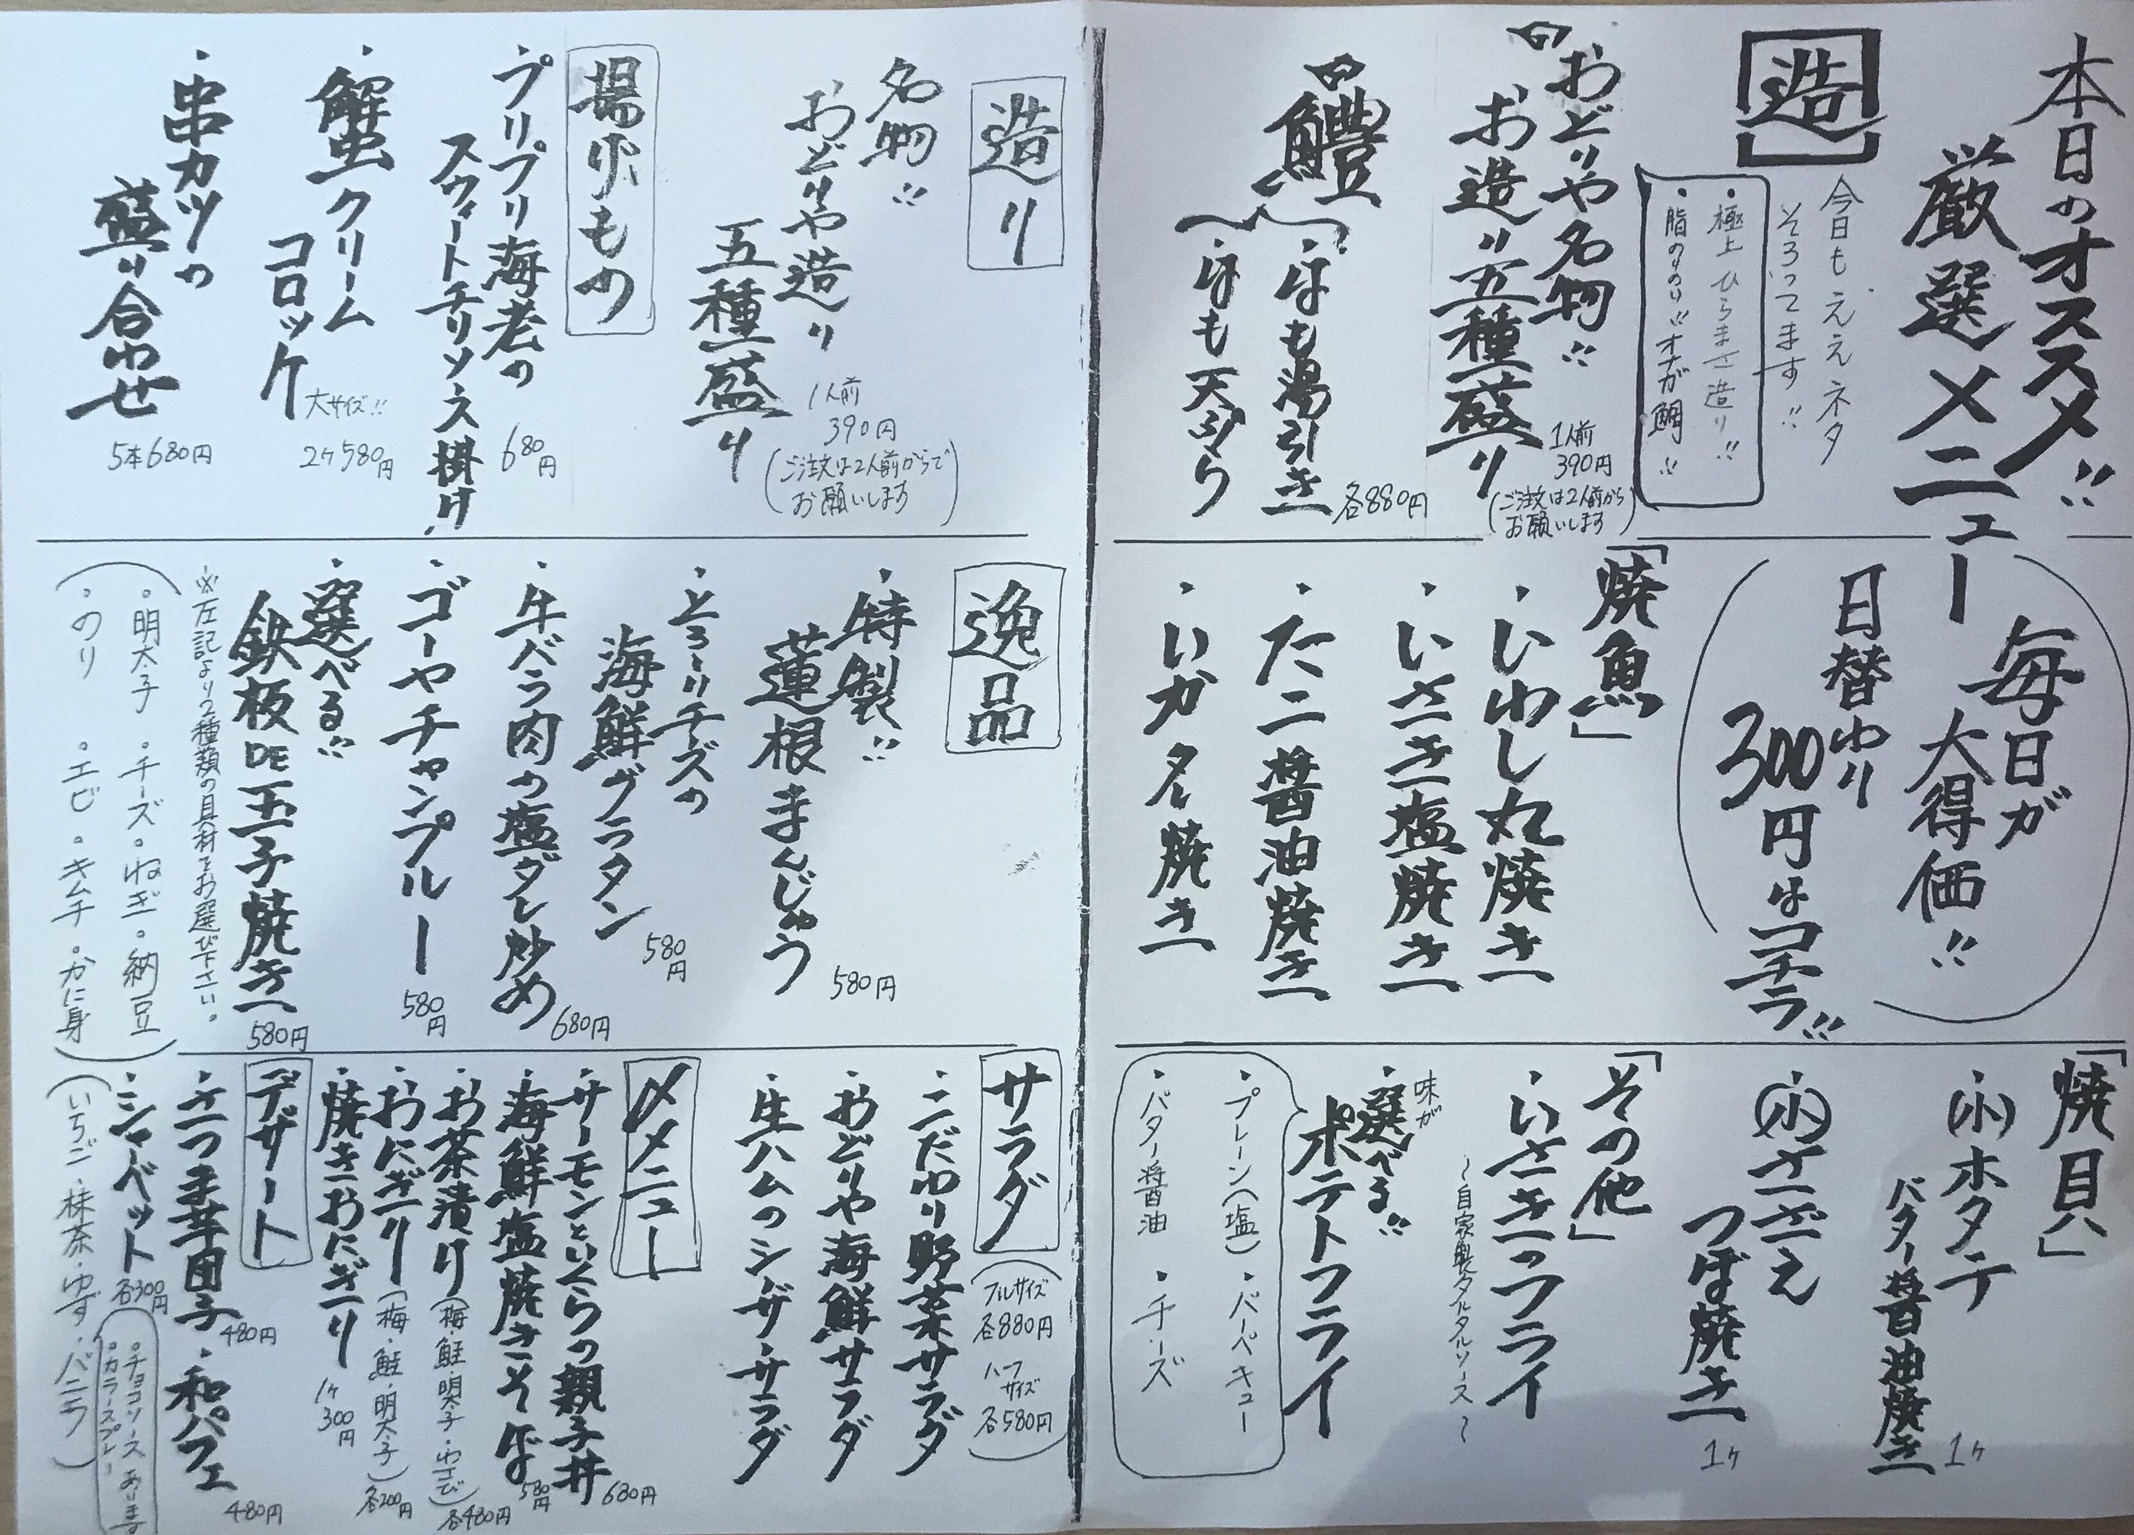 本日のオススメ!!
厳選メニュー
造
今日もええネタ
そろってます!!
・極上ひらまさ造り!!
・脂のりのり!!オナガ鯛!!
おどりや名物!!
お造り五種盛り
1人前
390円
(ご注文は2人前から
お願いします)
鱧
・はも湯引き
・はも天ぷら
各880円
毎日が
大得価!!
日替わり
300円はコチラ!!
「焼魚」
・いわし丸焼き
・いさき塩焼き
・たこ醤油焼き
・いかタレ焼き
「焼貝」
・(小)ホタテ
バター醤油焼き
1ケ
・(小)さざえ
つぼ焼き
1ケ
「その他」
・いさきのフライ
〜自家製タルタルソース〜
味が
・選べる!!
ポテトフライ
・プレーン(塩)・バーベキュー
・バター醤油・チーズ
造り
名物!!
おどりや造り
五種盛り
1人前
390円
(ご注文は2人前からで
お願いします)
揚げもの
・プリプリ海老の
スウィートチリソース掛け
680円
・蟹クリーム
コロッケ
大サイズ!!
2ケ580円
・串カツの
盛り合わせ
5本680円
逸品
・特製!!
蓮根まんじゅう
580円
・とろーりチーズの
海鮮グラタン
580円
・牛バラ肉の塩ダレ炒め
680円
・ゴーヤチャンプルー
580円
・選べる!!
鉄板DE玉子焼き
580円
※左記より2種類の具材をお選び下さい。
(・明太子・チーズ・ねぎ・納豆
・のり・エビ・キムチ・かに身)
サラダ
(フルサイズ
各880円
ハーフ
サイズ
各580円)
・こだわり野菜サラダ
・おどりや海鮮サラダ
・生ハムのシーザーサラダ
〆メニュー
・サーモンといくらの親子丼
680円
・海鮮塩焼きそば
580円
・お茶漬け(梅・鮭・明太子・わさび)
各480円
・おにぎり(梅・鮭・明太子)
各200円
・焼きおにぎり
1ケ
300円
デザート
・さつま芋団子
480円
・和パフェ
480円
・シャーベット
各300円
(いちご・抹茶・ゆず・バニラ)
・チョコソースあります
・カラースプレー